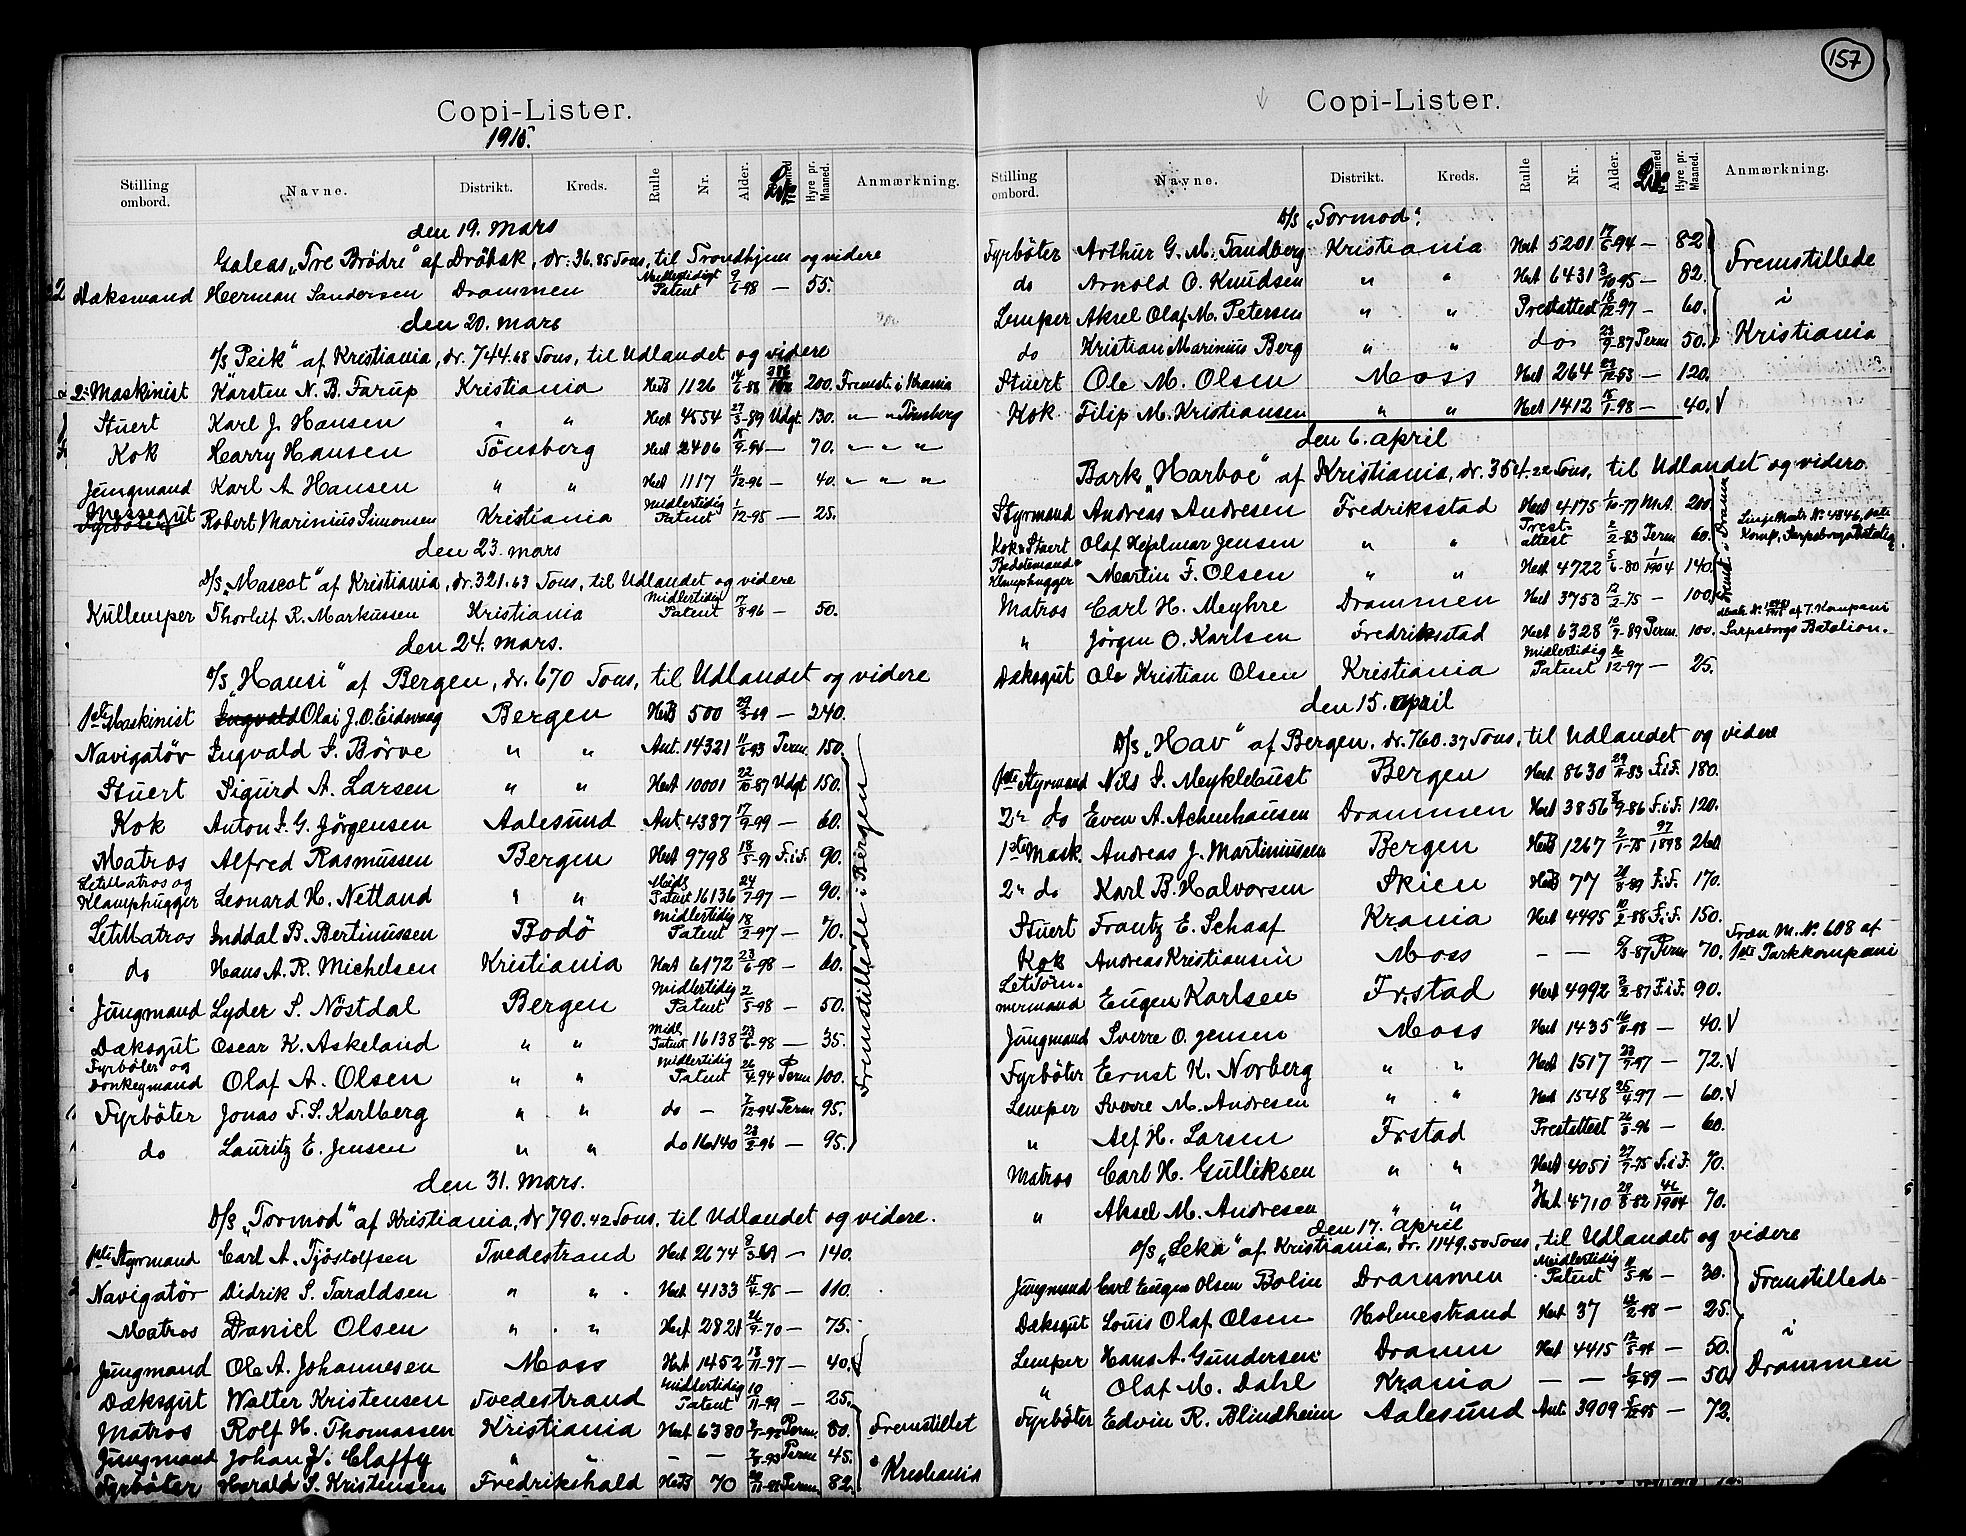 Copi-Lister.
1915.
Stilling ombord. Navne. Distrikt. Kreds. Rulle Nr. Alder. Hyre pr. Maaned. Anmærkning.
den 19. Mars
Galeas „Tre Brödre“ af Dröbak, dr. 36.85 Tons, til Trondhjem og videre
Dæksmand Herman Sandersen Drammen Midlertidigt Patent 9/6-98 — 55.
den 20. Mars
S/S „Peik“ af Kristiania, dr. 744.68 Tons, til Udlandet og videre
2. Maskinist Karsten N. B. Farup Kristiania HertB 1126 14/6-88 200. Fremst. i Krania
Stuert Karl J. Hansen " " Hert 4554 27/3-89 Udgt 130. " — " Tönsberg
Kok Harry Hansen Tönsberg Hert 2406 15/9-96 — 70. " — " "
Jungmand Karl A Hansen " " Hert 1117 11/12-96 — 40. " — " "
Messegut Robert Marinius Simonsen Kristiania Midlertidig Patent 1/12-95 — 25.
den 23. Mars
D/S „Mascot“ af Kristiania, dr. 321.63 Tons, til Udlandet og videre
Kullemper Thorleif R. Markussen Kristiania Midlertidig Patent 17/8-96 — 50.
den 24. Mars.
S/S „Hansi“ af Bergen, dr. 670 Tons, til Udlandet og videre
1ste Maskinist Ingvald Olai J. O. Eidsvaag Bergen HertB 500 29/5-69 — 240.
Navigatör Ingvald I. Börve " " Ant. 14321 11/6-93 Perm 150.
Stuert Sigurd A. Larsen " " Hert 10001 22/10-87 Udgt 150.
Kok Anton I. G. Jörgensen Aalesund Ant. 4387 17/9-99 — 60.
Matros Alfred Rasmussen Bergen Hert 9798 18/5-91 F.i F. 90.
Letmatros og Klamphugger Leonard H. Netland " " Midl. Patent 16136 24/7-97 — 90.
Letmatros Inddal B. Bertinussen Bodö Midlertidig Patent 18/2-97 — 70.
do Hans A. R. Michelsen Kristiania Hert 6172 23/6-98 — 60.
Jungmand Lyder S. Nöstdal Bergen Midlertidig Patent 2/5-98 — 50.
Dæksgut Oscar K. Askeland " " Midl. Patent 16138 23/6-98 — 35.
Fyrböter og Donkeymand Olaf A. Olsen " " Midlertidig Patent 26/4-94 Perm 100.
Fyrböter Jonas F. S. Karlberg " " do — 7/12-94 Perm 95.
do Lauritz E. Jensen " " do 16140 23/2-96 — 95.
Fremstillede i Bergen
den 31. Mars.
D/S „Tormod“ af Kristiania, dr 790.42 Tons, til Udlandet og videre.
1ste Styrmand Carl A. Tjöstolfsen Tvedestrand Hert 2674 8/3-69 — 140.
Navigatör Didrik S. Taraldsen " " Hert 4133 15/4-95 — 110.
Matros Daniel Olsen " " Hert 2821 26/9-70 — 75.
Jungmand Ole A. Johannesen Moss Hert 1452 13/11-97 — 40.
Dæksgut Walter Kristensen Tvedestrand Midlertidig Patent 10/11-99 — 25.
Matros Rolf H. Thomassen Kristiania Hert 6380 Perm. 80. Fremstillet
Jungmand Johan Claffy " " — — Perm 45.
Fyrböter Harald S. Kristensen Fredrikshald HertB 70 Perm. 82. i Kristiania
157
Copi-Lister.
Stilling ombord. Navne. Distrikt. Kreds. Rulle Nr. Alder. Hyre pr. Maaned. Anmærkning.
D/S „Tormod“.
Fyrböter Arthur G. M. Tandberg Kristiania Hert 5201 17/6-94 — 82
do Arnold O. Knudsen " " Hert 6431 3/10-95 — 82.
Lemper Aksel Olaf M. Petersen " " Prestattest 18/12-97 — 60.
do Kristian Marinius Berg " " do 23/9-87 Perm 50.
Fremstillede i Kristiania
Stuert Ole M. Olsen Moss Hert 264 23/12-53 — 120.
Kok Filip M. Kristiansen " " Hert 1412 15/1-98 — 40.
den 6. april
Bark „Harboe“ af Kristiania, dr. 354.22 Tons, til Udlandet og videre.
Styrmand Andreas Andresen Fredriksstad Hert 4175 1/10-77 M.A. 200
Kok & Stuert Olaf Hjalmar Jensen " " Prest-attest 2/2-83 Perm 60. Linje Matr. N. 4846, Komp, Sarpsborg Batalion
Klamphugger Martin F. Olsen " " Hert 4722 5/6-80 1/1904 140.
Matros Carl H. Meyhre Drammen Hert 3753 12/2-75 — 100.
" Jörgen O. Karlsen Fredriksstad Hert 6328 10/9-89 Perm. 100. af 7. Kompani Sarpsborgs Batalion.
Dæksgut Ole Kristian Olsen Kristiania Midlertidig Patent 2/12-97 — 25.
den 15. april
D/S „Hav“ af Bergen, dr. 760.37 Tons, til Udlandet og videre
1ste Styrmand Nils S. Myklebust Bergen Hert 8630 29/11-83 F.i F. 180.
2n do Even A. Achenhausen Drammen Hert 3856 8/9-86 F.i F. 120.
1ste Mask. Andreas J. Martiniussen Bergen HertB 1267 2/1-75 97/1898 260
2n do Karl B. Halvorsen Skien HertB 77 21/8-89 F.F. 170.
Stuert Frantz E. Schaaf Krania Hert 4495 10/2-88 F.i F. 150.
Kok Andreas Kristiansen Moss — — 6/3-87 Perm 70. Træn M. No. 608 af 1ste Parkkompani
Let Töm-mermand Eugen Karlsen Fr.stad Hert 4992 3/2-87 F.i F. 90.
Jungmand Sverre O. Jensen Moss Hert 1435 16/11-98 — 40.
Fyrböter Ernst K. Norberg " " Hert 1517 23/7-97 — 72.
Lemper Sverre M. Andresen " " Hert 1548 25/4-97 — 60.
" Alf H. Larsen Frstad Prestattest 26/8-96 — 60.
Matros Carl H. Gulliksen " " Hert 4051 27/7-75 F.i F. 70.
" Aksel M. Andresen " " Hert 4710 29/8-82 46/1904 70.
den 17. april
D/S „Leka“ af Kristiania, dr. 1149.50 Tons, til Udlandet og videre
Jungmand Carl Eugen Olsen Bolin Drammen Midlertidig Patent 11/5-96 — 30.
Dæksgut Louis Olaf Olsen Holmestrand Hert 37 12/2-98 — 25.
Lemper Hans A. Gundersen Dramn Hert 4415 12/5-94 — 50.
" Olaf M. Dahl Krania — — 1/2-89 — 50
Fremstillede i Drammen
Fyrböter Edvin R. Blindheim Aalesund Ant 3909 5/12-95 — 72.